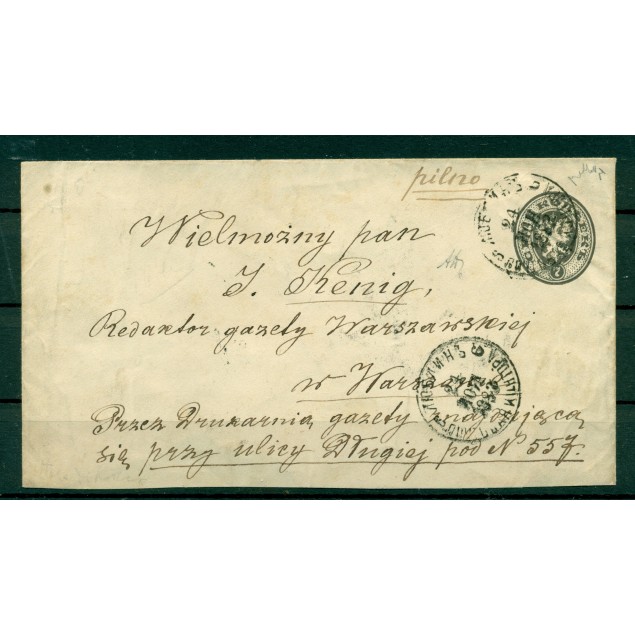 pilno
Wielmożny pan
J. Kenig,
Redaktor gazety Warszawskiej
w Warszawie
Przez Drukarnią gazety znajdującą
się przy ulicy Długiej pod N 557.